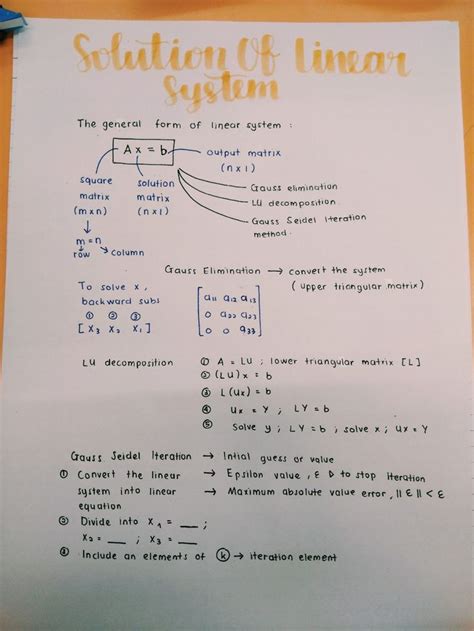 Solution Of Linear
System
The general form of linear system :
Ax = b
output matrix
(n x 1)
square
matrix
(m x n)
solution
matrix
(n x 1)
Gauss elimination
LU decomposition.
Gauss Seidel Iteration
method.
m = n
row
column
Gauss Elimination → convert the system
(upper triangular matrix)
To solve x,
backward subs
① ② ③
[ X3 X2 X1 ]
a11 a12 a13
0 a22 a23
0 0 a33
LU decomposition
① A = LU ; lower triangular matrix [L]
② (LU)x = b
③ L(Ux) = b
④ Ux = Y ; LY = b
⑤ Solve y ; LY = b ; solve x ; Ux = Y
Gauss Seidel Iteration → Intial guess or value
① Convert the linear
system into linear
equation
→ Epsilon value, ε to stop iteration
→ Maximum absolute value error, || ε || < ε
② Divide into X1 = __ ;
X2 = __ ; X3 = __
③ Include an elements of k → iteration element